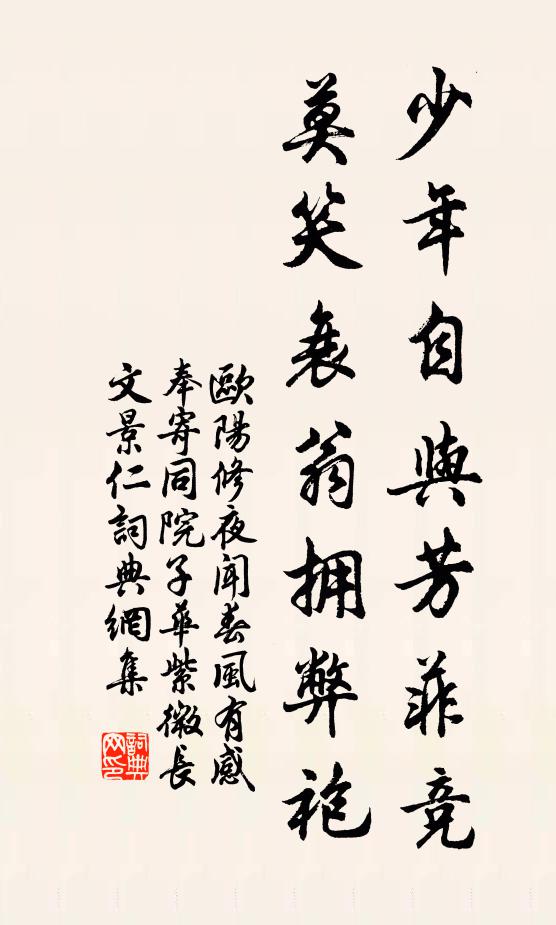 少年自與芳菲競
莫笑衰翁拥弊袍
歐陽修夜聞春風有感
奉寄同院子華紫微長
文景仁詞典網集
詞典
网印